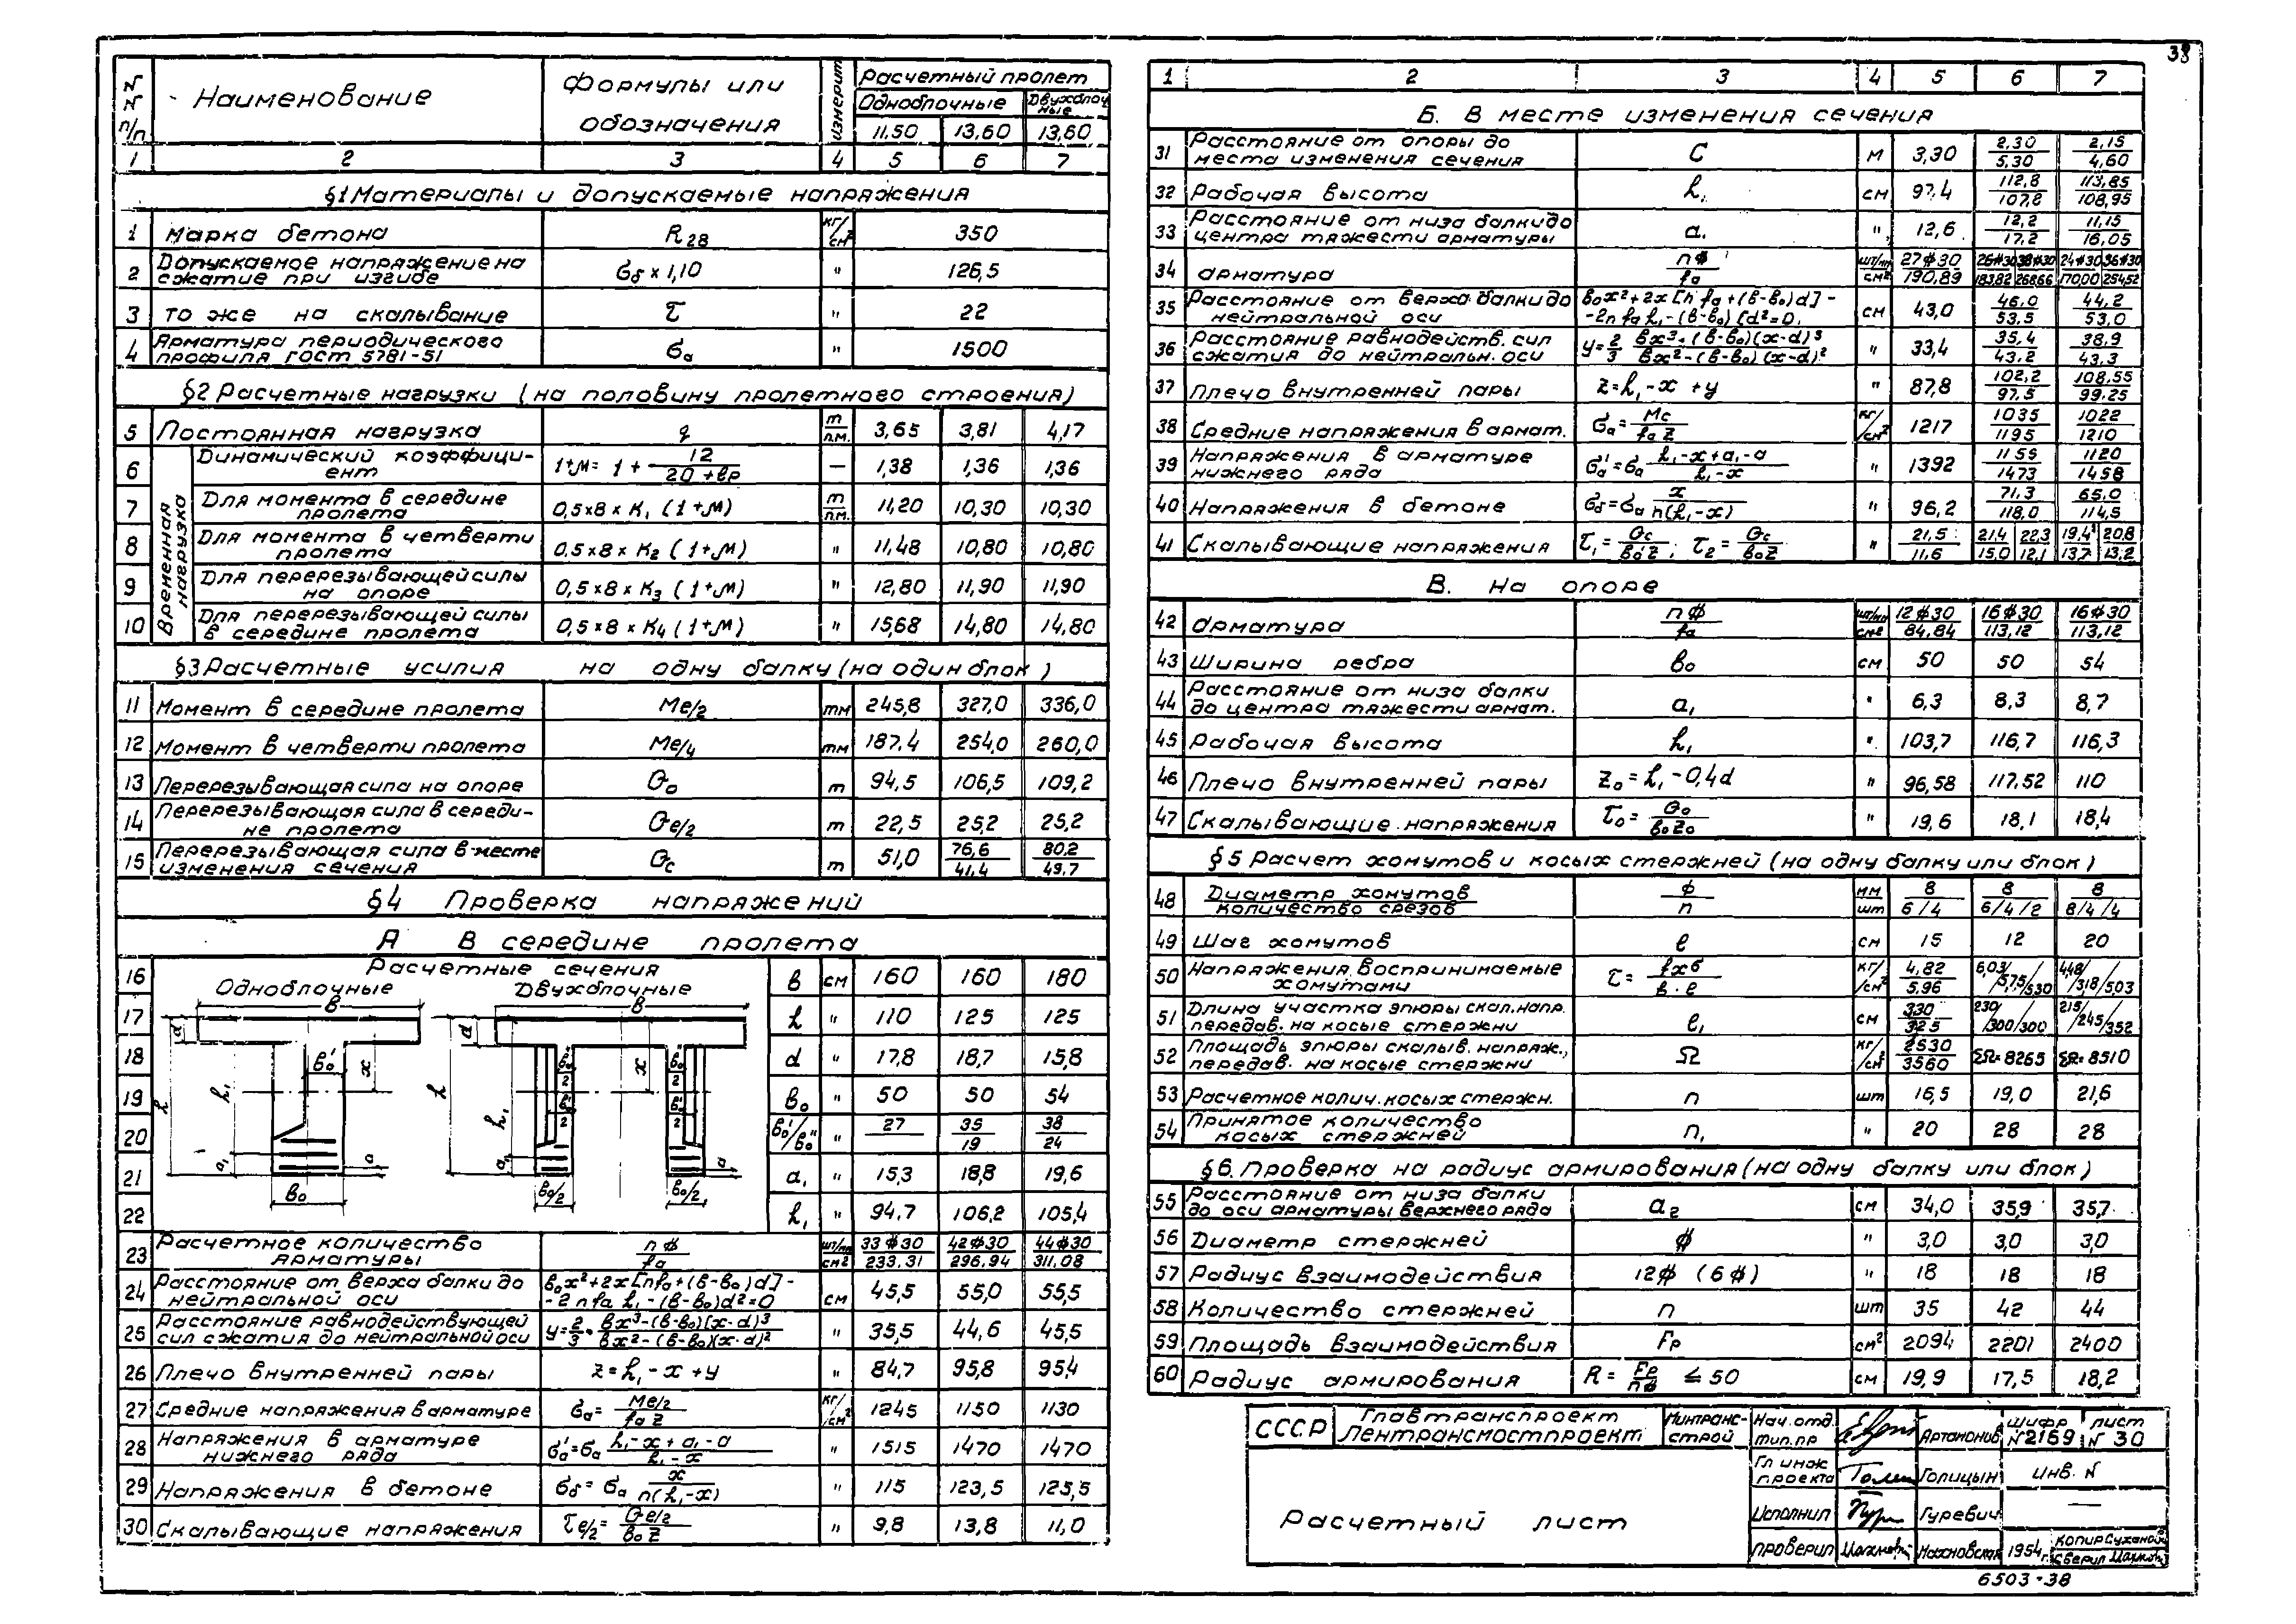 38
№№ п/п | Наименование | Формулы или обозначения | измерит | Расчетный пролет
Одноблочные | Двухблочные
11,50 | 13,60 | 13,60
1 | 2 | 3 | 4 | 5 | 6 | 7
§1 Материалы и допускаемые напряжения
1 | Марка бетона | R28 | кг/см² | 350
2 | Допускаемое напряжение на сжатие при изгибе | σб × 1,10 | " | 126,5
3 | то же на скалывание | τ | " | 22
4 | Арматура периодического профиля ГОСТ 5781-51 | σа | " | 1500
§2 Расчетные нагрузки (на половину пролетного строения)
5 | Постоянная нагрузка | q | т/п.м. | 3,65 | 3,81 | 4,17
Временная нагрузка
6 | Динамический коэффициент | 1+м = 1 + 12/(20+ℓр) | — | 1,38 | 1,36 | 1,36
7 | Для момента в середине пролета | 0,5×8×К₁ (1+м) | т/п.м. | 11,20 | 10,30 | 10,30
8 | Для момента в четверти пролета | 0,5×8×К₂ (1+м) | " | 11,48 | 10,80 | 10,80
9 | Для перерезывающей силы на опоре | 0,5×8×К₃ (1+м) | " | 12,80 | 11,90 | 11,90
10 | Для перерезывающей силы в середине пролета | 0,5×8×К₄ (1+м) | " | 15,68 | 14,80 | 14,80
§3 Расчетные усилия на одну балку (на один блок)
11 | Момент в середине пролета | Mℓ/2 | тм | 245,8 | 327,0 | 336,0
12 | Момент в четверти пролета | Mℓ/4 | тм | 187,4 | 254,0 | 260,0
13 | Перерезывающая сила на опоре | Q₀ | т | 94,5 | 106,5 | 109,2
14 | Перерезывающая сила в середине пролета | Qℓ/2 | т | 22,5 | 25,2 | 25,2
15 | Перерезывающая сила в месте изменения сечения | Qc | т | 51,0 | 76,6/41,4 | 80,2/49,7
§4 Проверка напряжений
А В середине пролета
Расчетные сечения
Одноблочные Двухблочные
16 | в | см | 160 | 160 | 180
17 | h | " | 110 | 125 | 125
18 | d | " | 17,8 | 18,7 | 15,8
19 | в₀ | " | 50 | 50 | 54
20 | в₀'/в₀" | " | 27 | 35/19 | 38/24
21 | а₁ | " | 15,3 | 18,8 | 19,6
22 | h₁ | " | 94,7 | 106,2 | 105,4
23 | Расчетное количество арматуры | nф/fа | шт/мм см² | 33ф30/233,31 | 42ф30/296,94 | 44ф30/311,08
24 | Расстояние от верха балки до нейтральной оси | в₀x²+2x[nfа+(в-в₀)d]- -2nfа h₁-(в-в₀)d²=0 | см | 45,5 | 55,0 | 55,5
25 | Расстояние равнодействующей сил сжатия до нейтральной оси | y=2/3·(вx³-(в-в₀)(x-d)³)/(вx²-(в-в₀)(x-d)²) | " | 35,5 | 44,6 | 45,5
26 | Плечо внутренней пары | z=h₁-x+y | " | 84,7 | 95,8 | 95,4
27 | Средние напряжения в арматуре | σа=Mℓ/2/(fа z) | кг/см² | 1245 | 1150 | 1130
28 | Напряжения в арматуре нижнего ряда | σа'=σа (h₁-x+а₁-а)/(h₁-x) | " | 1515 | 1470 | 1470
29 | Напряжения в бетоне | σб=σа x/(n(h₁-x)) | " | 115 | 123,5 | 125,5
30 | Скалывающие напряжения | τℓ/2=Qℓ/2/(в₀z) | " | 9,8 | 13,8 | 11,0
1 | 2 | 3 | 4 | 5 | 6 | 7
Б. В месте изменения сечения
31 | Расстояние от опоры до места изменения сечения | С | м | 3,30 | 2,30/5,30 | 2,15/4,60
32 | Рабочая высота | h₁ | см | 97,4 | 112,8/107,8 | 113,85/108,95
33 | Расстояние от низа балки до центра тяжести арматуры | а₁ | " | 12,6 | 12,2/17,2 | 11,15/16,05
34 | Арматура | nф/fа | шт/мм см² | 27ф30/190,89 | 26ф30/183,82 | 38ф30/268,66 | 24ф30/170,00 | 36ф30/254,52
35 | Расстояние от верха балки до нейтральной оси | в₀x²+2x[nfа+(в-в₀)d]- -2nfа h₁-(в-в₀)[d²=0 | см | 43,0 | 46,0/53,5 | 44,2/53,0
36 | Расстояние равнодейств. сил сжатия до нейтральн. оси | y=2/3 (вx³-(в-в₀)(x-d)³)/(вx²-(в-в₀)(x-d)²) | " | 33,4 | 35,4/43,2 | 38,9/43,3
37 | Плечо внутренней пары | z=h₁-x+y | " | 87,8 | 102,2/97,5 | 108,55/99,25
38 | Средние напряжения в армат. | σа=Mc/(fа z) | кг/см² | 1217 | 1035/1195 | 1022/1210
39 | Напряжения в арматуре нижнего ряда | σа'=σа (h₁-x+а₁-а)/(h₁-x) | " | 1392 | 1155/1473 | 1120/1458
40 | Напряжения в бетоне | σб=σа x/(n(h₁-x)) | " | 96,2 | 71,3/118,0 | 65,0/114,5
41 | Скалывающие напряжения | τ₁=Qc/(в₀'z); τ₂=Qc/(в₀z) | " | 21,5/11,6 | 21,4/15,0 | 22,3/12,1 | 19,4/13,7 | 20,8/13,2
В. На опоре
42 | Арматура | nф/fа | шт/мм см² | 12ф30/84,84 | 16ф30/113,12 | 16ф30/113,12
43 | Ширина ребра | в₀ | см | 50 | 50 | 54
44 | Расстояние от низа балки до центра тяжести армат. | а₁ | " | 6,3 | 8,3 | 8,7
45 | Рабочая высота | h₁ | " | 103,7 | 116,7 | 116,3
46 | Плечо внутренней пары | z₀=h₁-0,4d | " | 96,58 | 117,52 | 110
47 | Скалывающие напряжения | τ₀=Q₀/(в₀z₀) | " | 19,6 | 18,1 | 18,4
§5 Расчет хомутов и косых стержней (на одну балку или блок)
48 | Диаметр хомутов/количество срезов | ф/n | мм/шт | 8 6/4 | 8 6/4/2 | 8 8/4/4
49 | Шаг хомутов | ℓ | см | 15 | 12 | 20
50 | Напряжения, воспринимаемые хомутами | τ=fхσ/(в·ℓ) | кг/см² | 4,82/5,96 | 6,03/5,75/5,30 | 4,48/3,18/5,03
51 | Длина участка эпюры скал. напр. передав. на косые стержни | ℓ₁ | см | 330/325 | 230/300/300 | 215/245/352
52 | Площадь эпюры скалыв. напряж., передав. на косые стержни | Ω | кг/см² | 2530/3560 | ΣΩ=8265 | ΣΩ=8510
53 | Расчетное колич. косых стержн. | n | шт | 16,5 | 19,0 | 21,6
54 | Принятое количество косых стержней | n₁ | " | 20 | 28 | 28
§6. Проверка на радиус армирования (на одну балку или блок)
55 | Расстояние от низа балки до оси арматуры верхнего ряда | а₂ | см | 34,0 | 35,9 | 35,7
56 | Диаметр стержней | ф | " | 3,0 | 3,0 | 3,0
57 | Радиус взаимодействия | 12ф (6ф) | " | 18 | 18 | 18
58 | Количество стержней | n | шт | 35 | 42 | 44
59 | Площадь взаимодействия | Fр | см² | 2094 | 2201 | 2400
60 | Радиус армирования | R=Fр/nф ≤ 50 | см | 19,9 | 17,5 | 18,2
СССР | Главтранспроект Лентрансмостпроект | Минтрансстрой | Нач. отд. тип. пр | Артамонов | шифр №2169 | лист № 30
Гл. инж проекта | Голицын | Инв. №
Исполнил | Гуревич | —
Проверил | Махновская | 1954г. | Копир Суханов
Сверил
Расчетный лист
6503-38